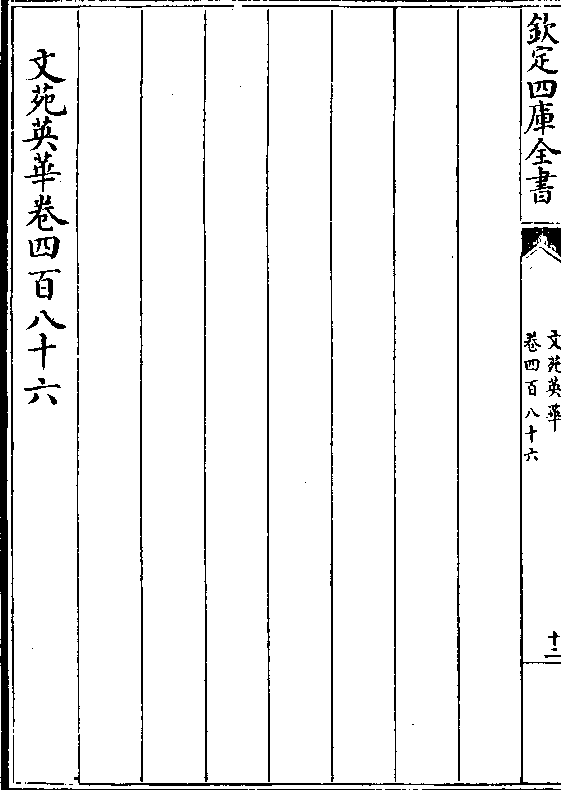 欽定四庫全書
文苑英華
卷四百八十六
十二
文苑英華卷四百八十六